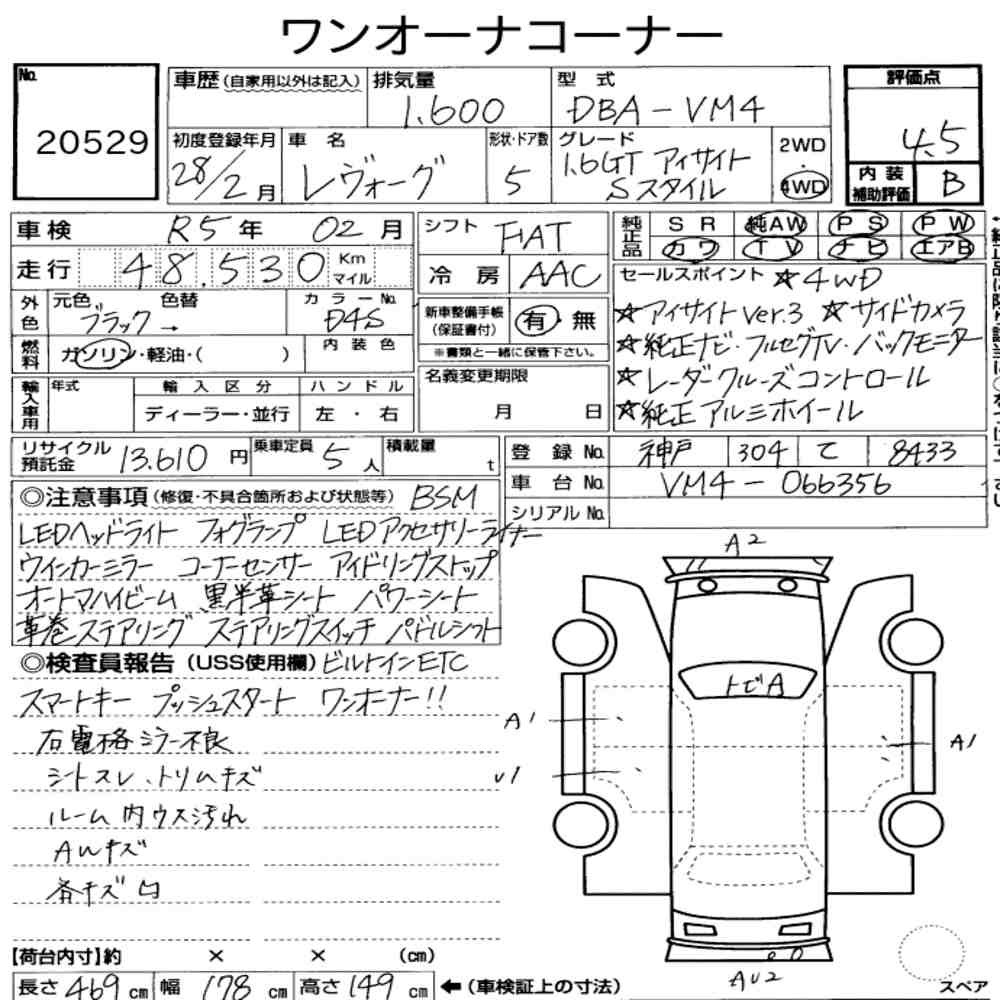 ワンオーナコーナー
No.
20529
車歴(自家用以外は記入)
排気量
1.600
型 式
DBA-VM4
初度登録年月
28/2月
車 名
レヴォーグ
形状・ドア数
5
グレード
1.6GT アイサイト
Sスタイル
2WD
・
4WD
評価点
4.5
内装
補助評価
B
車検 R5年 02月
走行 48.530 Km
マイル
シフト FIAT
冷房 AAC
純正品
SR 純AW PS PW
カワ TV ナビ エアB
外色
元色
ブラック→
色替
カラーNo.
D4S
燃料
ガソリン・軽油・( )
内装色
新車整備手帳
(保証書付)
有・無
※書類と一緒に保管下さい。
セールスポイント ☆4WD
☆アイサイトver.3 ☆サイドカメラ
☆純正ナビ・フルセグTV・バックモニター
☆レーダークルーズコントロール
☆純正アルミホイール
輸入車用
年式
輸入区分
ディーラー・並行
ハンドル
左・右
名義変更期限
月 日
リサイクル
預託金
13.610円
乗車定員
5人
積載量
t
登録No. 神戸 304 て 8433
車台No. VM4-066356
シリアルNo.
◎注意事項(修復・不具合箇所および状態等) BSM
LEDヘッドライト フォグランプ LEDアクセサリーライナー
ウインカーミラー コーナーセンサー アイドリングストップ
オートマハイビーム 黒半革シート パワーシート
革巻ステアリング ステアリングスイッチ パドルシフト
◎検査員報告(USS使用欄) ビルトインETC
スマートキー プッシュスタート ワンオーナー!!
右電格ミラー不良
シートスレ、トリムキズ
ルーム内ウス汚れ
AWキズ
各キズ凹
A2
トビA
A1
A1
U1
AU2
【荷台内寸】約 × × (cm)
長さ469cm 幅178cm 高さ149cm ←(車検証上の寸法)
スペア